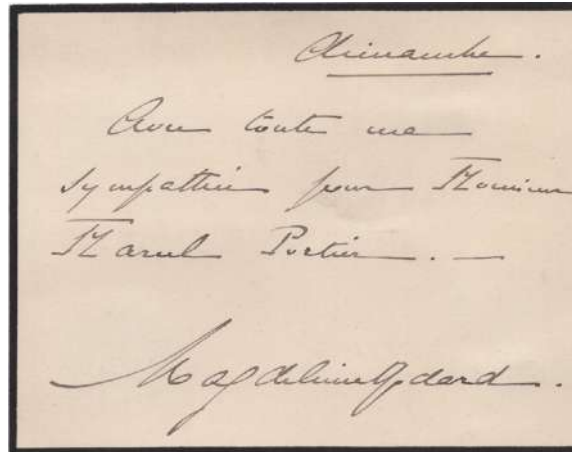 Dimanche.
Avec toute ma
sympathie pour Monsieur
Marcel Portier. —
Magdeleine Godard.